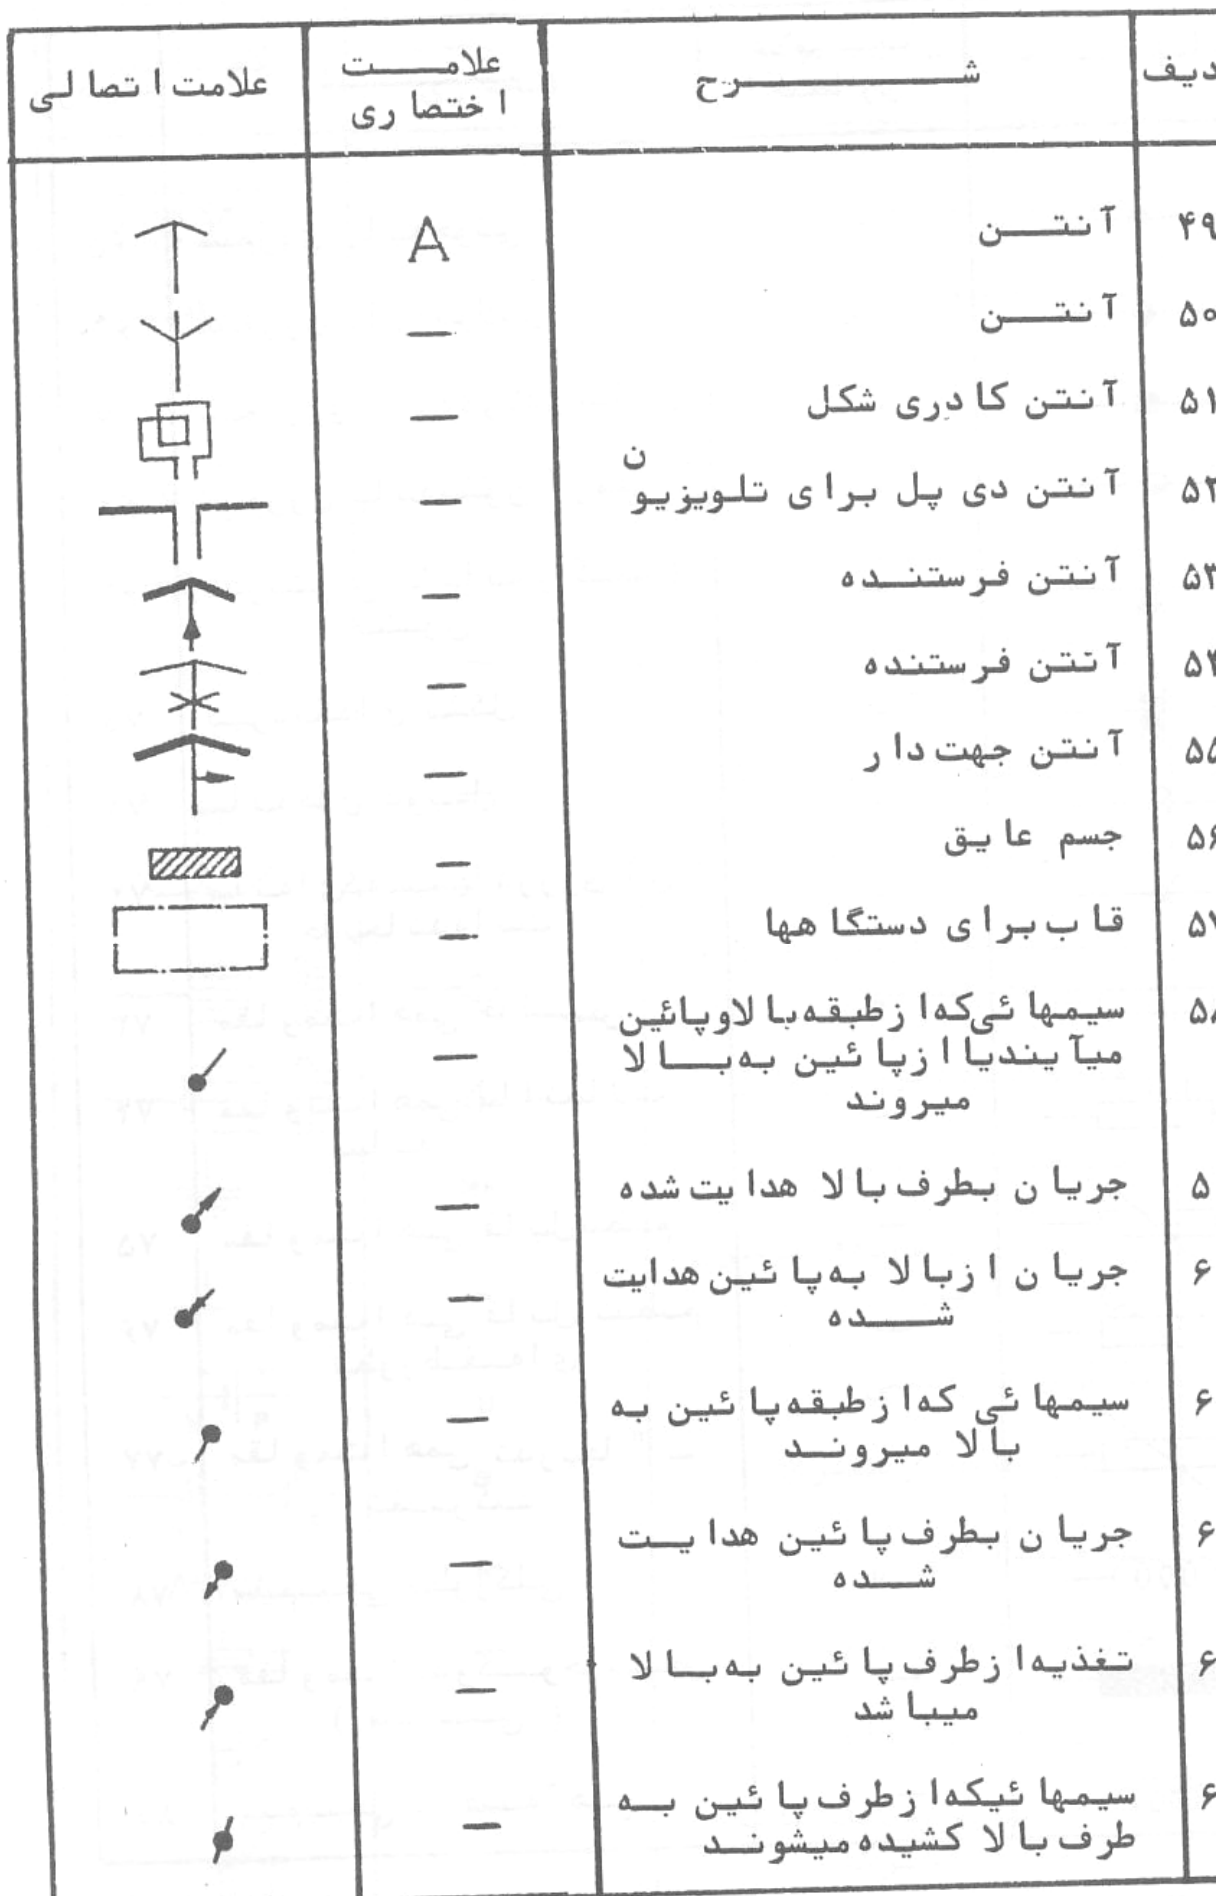 دیف شرح علامت علامت اتصالی
اختصاری
۴۹ آنتن A
۵۰ آنتن —
۵۱ آنتن کادری شکل —
۵۲ آنتن دی پل برای تلویزیون —
۵۳ آنتن فرستنده —
۵۴ آنتن فرستنده —
۵۵ آنتن جهت دار —
۵۶ جسم عایق —
۵۷ قاب برای دستگاهها —
۵۸ سیمهائی که از طبقه بالا و پائین —
میآیند یا از پائین به بالا
میروند
۵ جریان بطرف بالا هدایت شده —
۶ جریان از بالا به پائین هدایت —
شده
۶ سیمهائی که از طبقه پائین به —
بالا میروند
۶ جریان بطرف پائین هدایت —
شده
۶ تغذیه از طرف پائین به بالا —
میباشد
۶ سیمهائیکه از طرف پائین به —
طرف بالا کشیده میشوند